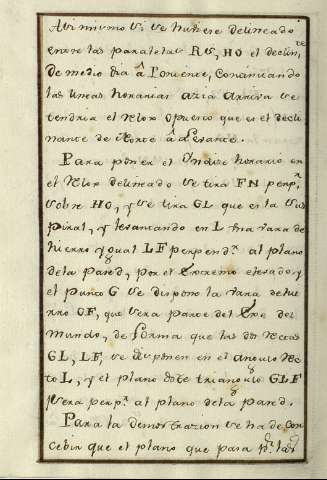 Asi mismo si se hubiere delineado
entre las paralelas RS, HO el declin.te
de medio dia â Poniente, continuando
las lineas horarias azia arriva se
tendria el Relox opuesto que es el decli
nante de Norte â Levante.
Para poner el Yndize horario en
el Relox delineado se tira FN perp.r
sobre HO, y se tira GL que es la sus
pilar, y levantando en L una vara de
hierro ygual LF perpend.r al plano
de la pared, por el extremo elevado y
el punto G se dispone la vara de hie
rro GF, que sera parte del Exe del
mundo, de forma que las dos rectas
GL, LF, se disponen en el angulo rec
to L, y el plano deste triangulo GLF
sera perp.r al plano de la pared.
Para la demostrazion se ha de con
cebir que el plano que para p.r las